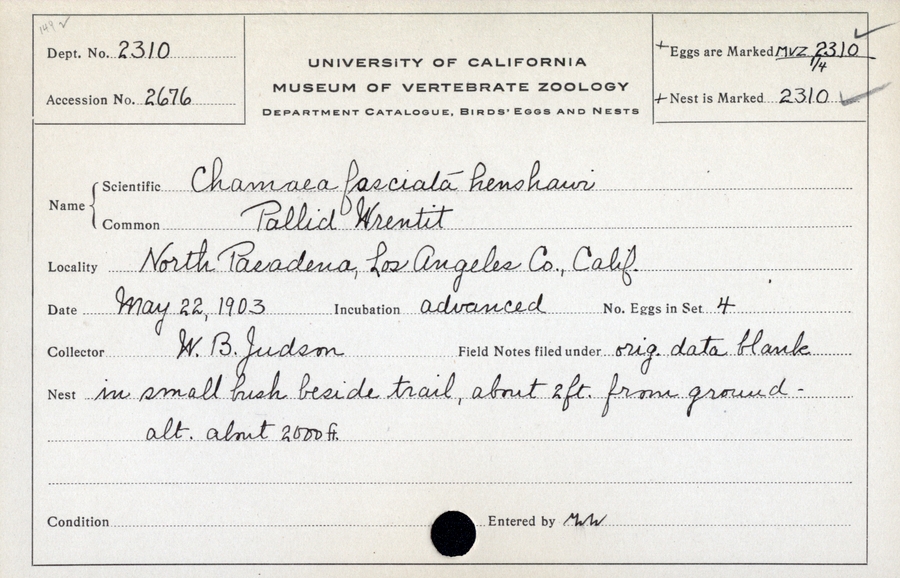 149 ✓
Dept. No. 2310
Accession No. 2676
UNIVERSITY OF CALIFORNIA
MUSEUM OF VERTEBRATE ZOOLOGY
DEPARTMENT CATALOGUE, BIRDS' EGGS AND NESTS
+ Eggs are Marked MVZ 2310 ✓
1/4
+ Nest is Marked 2310 ✓
Name { Scientific Chamaea fasciata henshawi
Common Pallid Wrentit
Locality North Pasadena, Los Angeles Co., Calif.
Date May 22, 1903 Incubation advanced No. Eggs in Set 4
Collector W. B. Judson Field Notes filed under orig. data blank
Nest in small bush beside trail, about 2ft. from ground -
alt. about 2000 ft.
Condition Entered by